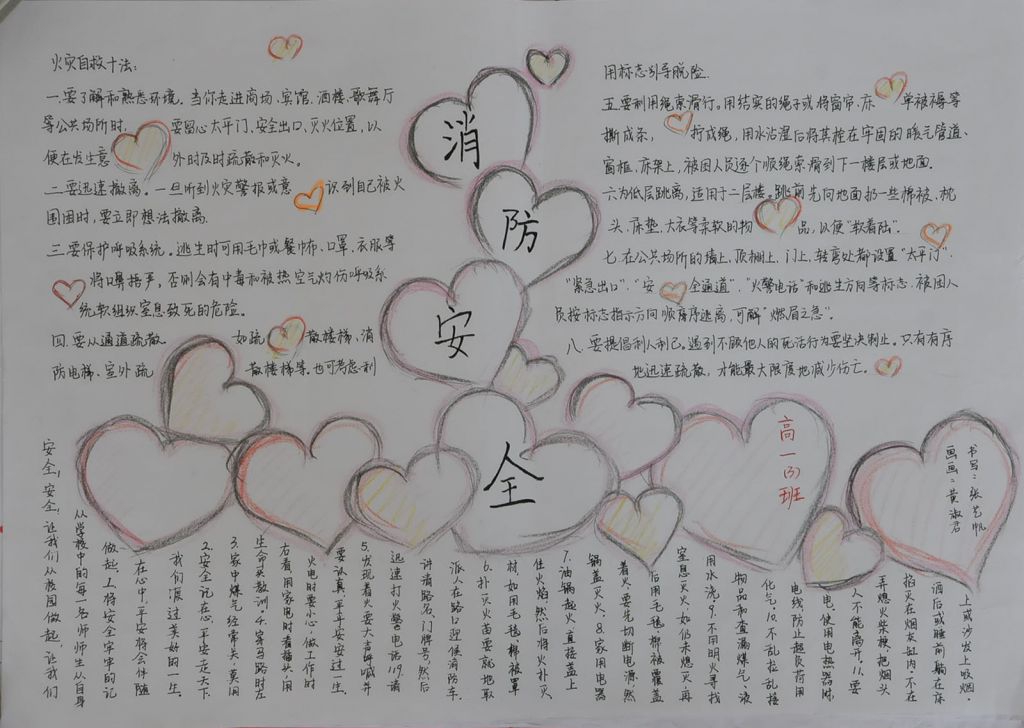 火灾自救十法:
一.要了解和熟悉环境。当你走进商场、宾馆、酒楼、歌舞厅
等公共场所时,要留心太平门、安全出口、灭火位置,以
便在发生意外时及时疏散和灭火。
二.要迅速撤离。一旦听到火灾警报或意识到自己被火
围困时,要立即想法撤离。
三.要保护呼吸系统。逃生时可用毛巾或餐巾布、口罩、衣服等
将口鼻捂严,否则会有中毒和被热空气灼伤呼吸系
统软组织窒息致死的危险。
四.要从通道疏散。如疏散楼梯、消
防电梯、室外疏散楼梯等。也可考虑利
消
防
安
全
用标志引导脱险.
五.要利用绳索滑行。用结实的绳子或将窗帘、床单被褥等
撕成条,拧成绳,用水沾湿后将其拴在牢固的暖气管道、
窗框、床架上,被困人员逐个顺绳索滑到下一楼层或地面.
六.为低层跳离,适用于二层楼。跳前先向地面扔一些棉被、枕
头、床垫、大衣等柔软的物品,以便“软着陆”.
七.在公共场所的墙上、顶棚上、门上、转弯处都设置“太平门”.
“紧急出口”、“安全通道”、“火警电话”和逃生方向等标志.被困人
员按标志指示方向顺序逃离,可解“燃眉之急”.
八.要提倡利人利己。遇到不顾他人的死活行为要坚决制止。只有有序
地迅速疏散,才能最大限度地减少伤亡。
高一(3)班
书写:张艺帆
画画:黄淑君
安全,安全,让我们从校园做起,让我们
从学校中的每一名师师生从自身
做起,1.将安全牢牢的记
在心中,平安将会伴随
我们渡过美好的一生.
2.安全记在心,平安走天下
3.家中煤气经常关,莫用
生命来教训4.穿马路时左
右看,用家电时看插头,用
火电时要小心,做工作时
要认真,平平安安过一生.
5.发现着火要大声呼喊并
迅速打火警电话119.请
讲清路名、门牌号,然后
派人在路口迎候消防车.
6.扑灭火苗要就地取
材,如用毛毯、棉被罩
住火焰,然后将火扑灭
7.油锅起火直接盖上
锅盖灭火,8.家用电器
着火要先切断电源,然
后用毛毯、棉被覆盖
窒息灭火,如仍未熄灭,再
用水浇9.不用明火寻找
物品和查漏煤气、液
化气,10.不乱拉乱接
电线,防止超负荷用
电,使用电热器时,
人不能离开,11.要
弄熄火柴梗,把烟头
掐灭在烟灰缸内,不在
酒后或睡前躺在床
上或沙发上吸烟.